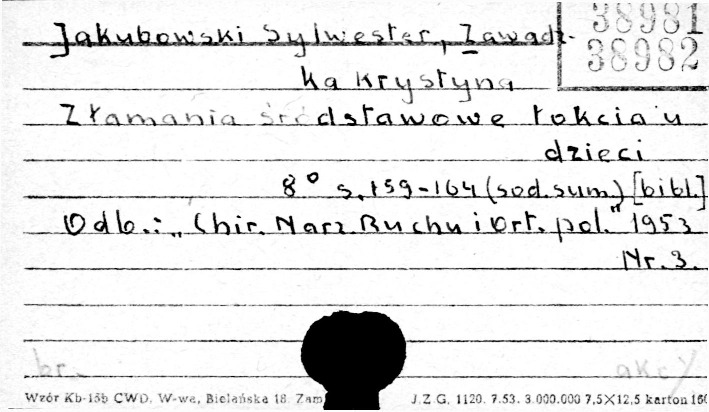 Jakubowski Sylwester, Zawadz-
ka Krystyna
38981
38982
Złamania śródstawowe łokcia u
dzieci
8° s. 159-164 (sod. sum.) [bibl.]
Odb.: „Chir. Narz. Ruchu i Ort. pol." 1953
Nr. 3.
br. akcy
Wzór Kb-15b CWD. W-wa, Bielańska 18. Zam
J.Z.G. 1120. 7.53. 3.000.000 7,5×12,5 karton 160